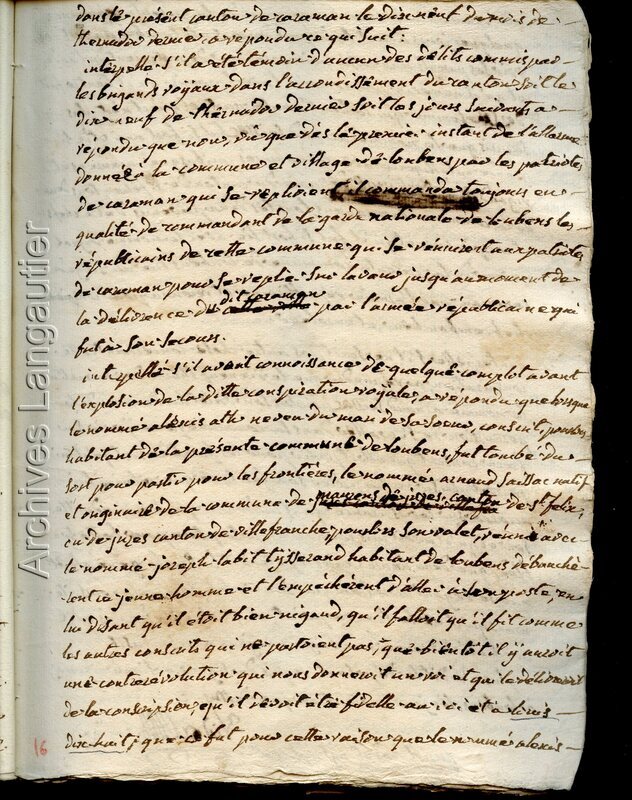 dans le présent canton de caraman le dixneuf du mois de
thermidor dernier a répondu ce qui suit :
interpellé s'il a été témoin d'aucun des délits commis par
les brigands royaux dans l'arrondissement du canton soit le
dix neuf de thérmidor dernier soit les jours suivants a
répondu que non, vû que dès le premier instant de l'allarme
donnée a la commune et village de loubens par les patriotes
de caraman qui se replioient il commanda toujours en
qualité de commandant de la garde nationale de loubens les
républicains de cette commune qui se réunirent aux patriotes
de caraman pour se replier sur lavaur jusqu'au moment de
la délivrence du dit caraman par l'armée républicaine qui
fut à son secours.
interpellé s'il avait connoissance de quelque complot avant
l'explosion de la ditte conspiration royale, a répondu que lorsque
le nommé aléxis ath neveu du mari de sa soeur, conscrit,
habitant de la présente commune de loubens, fut tombé du
sort pour partir pour les frontières, le nommé arnaud saissac natif
et originaire de la commune de mauvens de juzes canton de st felix,
ou de juzes canton de villefranche son valet, réuni avec
le nommé joseph labit tysserand habitant de loubens débauchè-
rent ce jeune homme et l'empéchérent d'aller à son poste, en
lui disant qu'il étoit bien nigaud, qu'il falloit qu'il fit comme
les autres conscrits qui ne partoient pas, que bientôt il y auroit
une contrerévolution qui nous donneroit un roi et qui le délivreroit
de la conscription, qu'il devoit être fidelle au roi et à louis
dix huit ; que ce fut pour cette raison que le nommé alexis
16
Archives Langautier